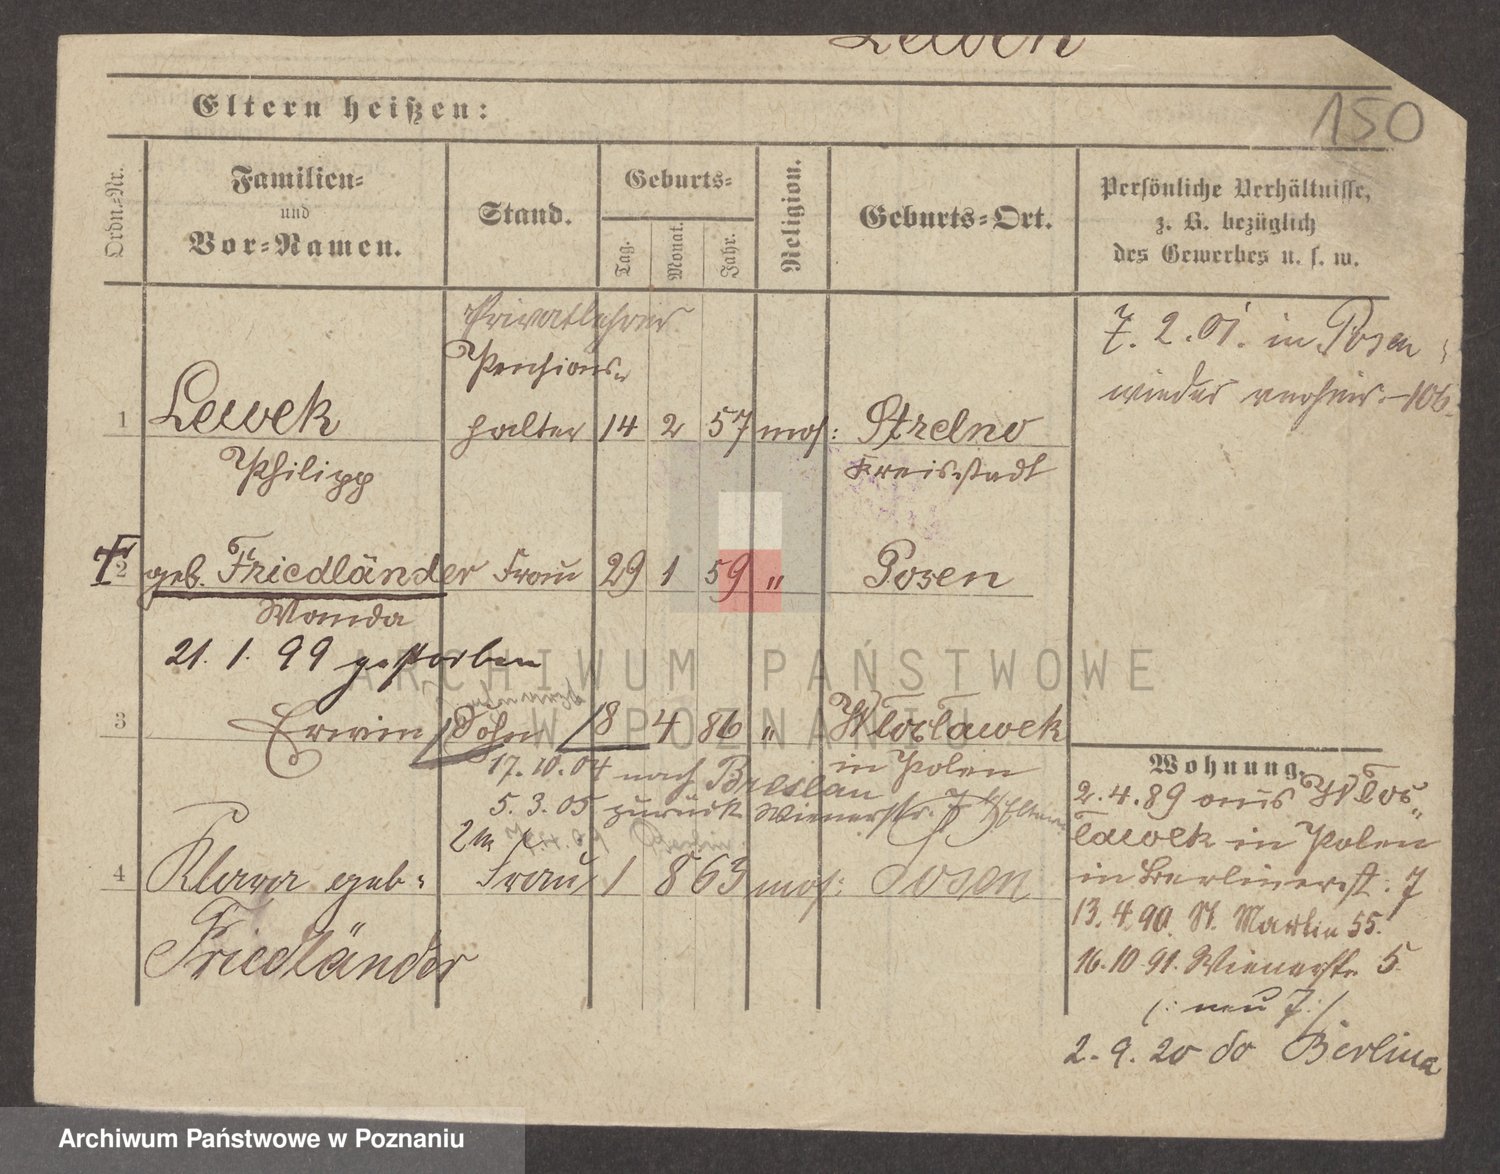 Lewek
150
Eltern heißen:
Ordn.-Nr.
Familien-
und
Vor-Namen.
Stand.
Geburts-
Tag.
Monat.
Jahr.
Religion.
Geburts-Ort.
Persönliche Verhältnisse,
z. B. bezüglich
des Gewerbes u. s. w.
Privatlehrer
Pensions-
1 Lewek halter 14 2 57 mos: Strelno
Philipp Kreisstadt
7. 2. 01. in Posen
wieder verheir. 106
2 geb. Friedländer Frau 29 1 59 " Posen
Wanda
21. 1. 99 gestorben
3 Erwin Sohn 18 4 86 " Wloclawek
in Polen
17. 10. 04 nach Breslau
5. 3. 05 zurück Wienerstr. 7
2tn
4 Klara geb: Frau 1 8 63 mos: Posen
Friedländer
Wohnung.
2. 4. 89 aus Wloc-
lawek in Polen
in Berlinerst. 7
13. 4. 90. St. Martin 55.
16. 10. 91. Wienerstr. 5
(: neu 7 :)
2. 9. 20 do Berlin
ARCHIWUM PAŃSTWOWE
W POZNANIU
Archiwum Państwowe w Poznaniu